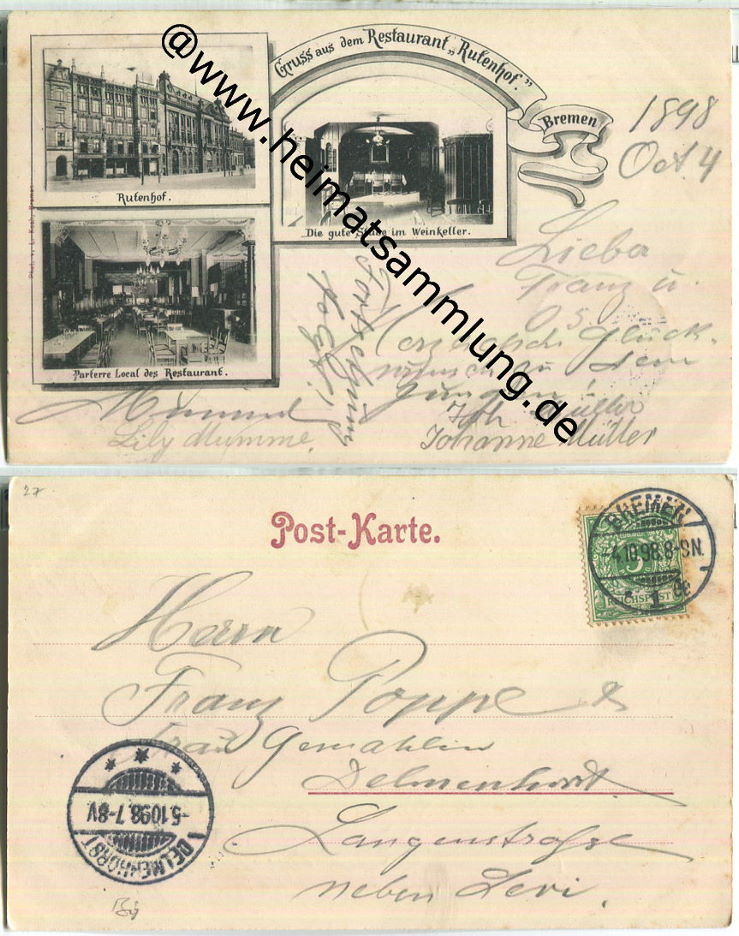 Gruss aus dem Restaurant „Rutenhof."
Bremen
1898
Oct 4
Rutenhof.
Die gute Stube im Weinkeller.
Parterre Local des Restaurant.
Lieber
Franz u.
Herzliche Glück-
wunsch zu dem
Jungen!
Joh. Müller
Johanne Müller
Fortsetzung
folgt!
Mumme
Lily Mumme.
@www.heimatsammlung.de
27
Post-Karte.
BREMEN
-4.10.98.8-9N.
1
REICHSPOST
Herrn
Franz Poppe &
Frau Gemahlin
Delmenhorst.
Langenstraße
neben Levi.
DELMENHORST
-5.10.98.7-8V.